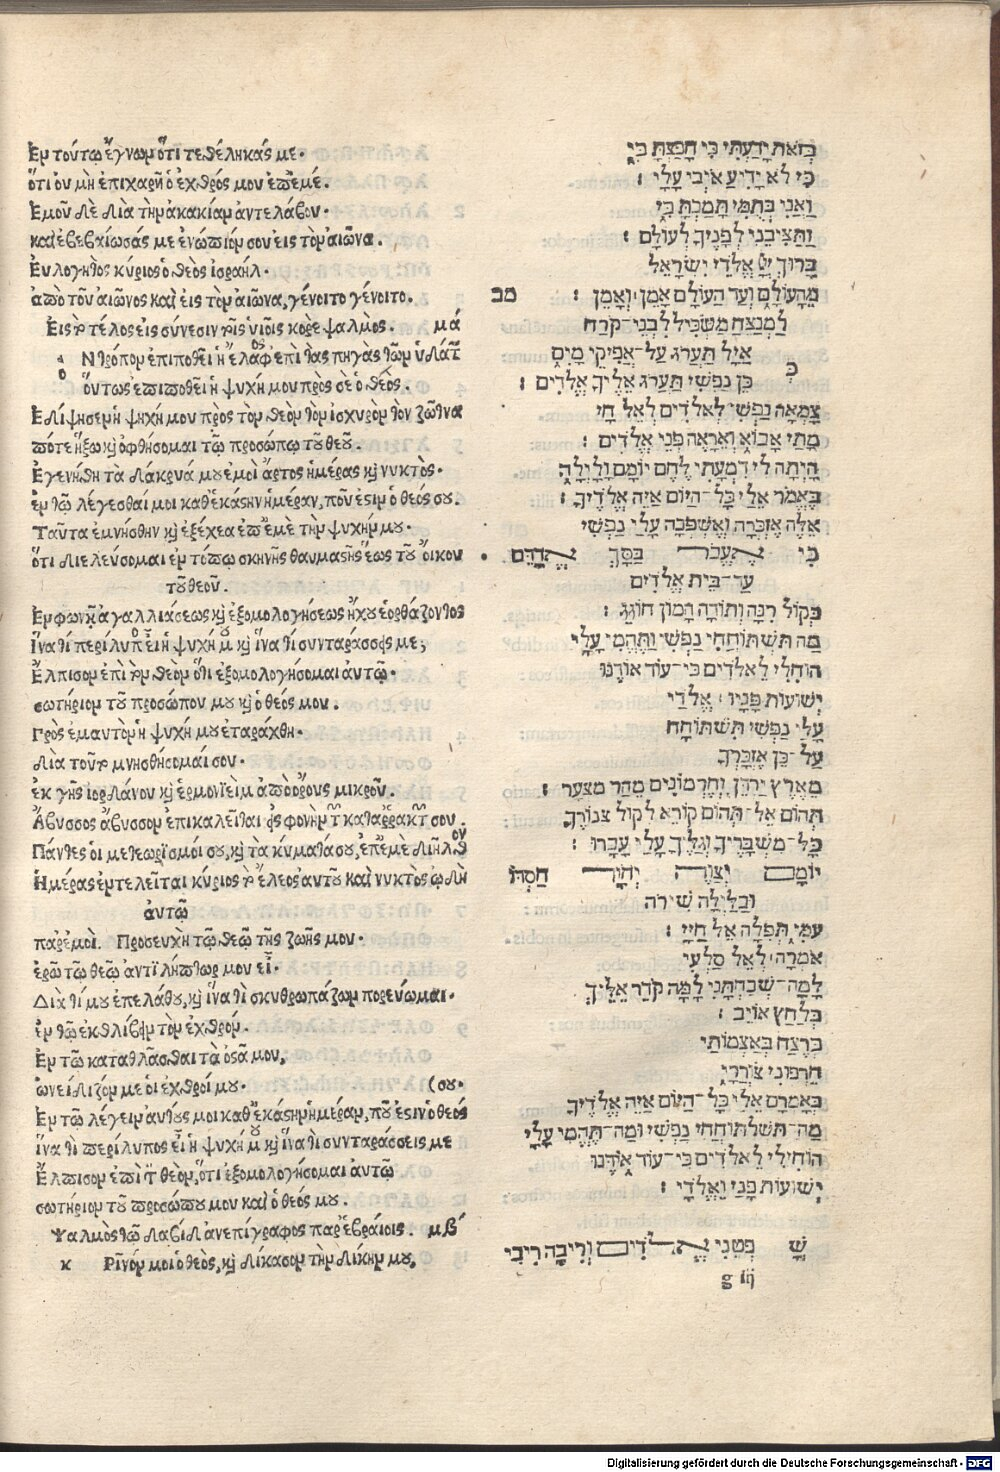 Ἐν τούτῳ ἔγνων ὅτι τεθέληκάς με.
ὅτι οὐ μὴ ἐπιχαρῇ ὁ ἐχθρός μου ἐπ᾽ ἐμέ.
Ἐμοῦ δὲ διὰ τὴν ἀκακίαν ἀντελάβου.
καὶ ἐβεβαίωσάς με ἐνώπιόν σου εἰς τὸν αἰῶνα.
Εὐλογητὸς κύριος ὁ θεὸς ἰσραήλ.
ἀπὸ τοῦ αἰῶνος καὶ εἰς τὸν αἰῶνα, γένοιτο γένοιτο.
Εἰς τὸ τέλος εἰς σύνεσιν τοῖς υἱοῖς κορε ψαλμος. μά
Ὃ Ν τρόπον ἐπιποθεῖ ἡ ἔλαφος ἐπὶ τὰς πηγὰς τῶν ὑδάτ
οὕτως ἐπιποθεῖ ἡ ψυχή μου πρὸς σὲ ὁ θεός.
Ἐδίψησεν ἡ ψυχή μου πρὸς τὸν θεὸν τὸν ἰσχυρὸν τὸν ζῶντα
πότε ἥξω κὶ ὀφθήσομαι τῷ προσώπῳ τοῦ θεοῦ.
Ἐγενήθη τὰ δάκρυά μου ἐμοὶ ἄρτος ἡμέρας κὶ νυκτός.
ἐν τῷ λέγεσθαί μοι καθ᾽ ἑκάστην ἡμέραν, ποῦ ἐστιν ὁ θεός σου.
Ταῦτα ἐμνήσθην κὶ ἐξέχεα ἐπ᾽ ἐμὲ τὴν ψυχήν μου.
ὅτι διελεύσομαι ἐν τόπῳ σκηνῆς θαυμαστῆς ἕως τοῦ οἴκου
τοῦ θεοῦ.
Ἐν φωνῇ ἀγαλλιάσεως κὶ ἐξομολογήσεως ἤχου ἑορτάζοντος
ἵνα τί περίλυπος εἶ ἡ ψυχή μου κὶ ἵνα τί συνταράσσῃς με;
Ἔλπισον ἐπὶ τὸν θεὸν ὅτι ἐξομολογήσομαι αὐτῷ.
σωτήριον τοῦ προσώπου μου κὶ ὁ θεός μου.
Πρὸς ἐμαυτὸν ἡ ψυχή μου ἐταράχθη.
διὰ τοῦτο μνησθήσομαί σου.
ἐκ γῆς ἰορδάνου κὶ ἑρμονιεὶμ ἀπὸ ὄρους μικροῦ.
Ἄβυσσος ἄβυσσον ἐπικαλεῖται εἰς φονὴν τῶν καταρρακτῶν σου.
Πάντες οἱ μετεωρισμοί σου, κὶ τὰ κύματά σου, ἐπ᾽ ἐμὲ διῆλθον
Ἡμέρας ἐντελεῖται κύριος τὸ ἔλεος αὐτοῦ καὶ νυκτὸς ᾠδὴ
αὐτῷ
παρ᾽ ἐμοί. Προσευχὴ τῷ θεῷ τῆς ζωῆς μου.
ἐρῶ τῷ θεῷ ἀντιλήπτωρ μου εἶ.
Διὰ τί μου ἐπελάθου, κὶ ἵνα τί σκυθρωπάζων πορεύωμαι.
ἐν τῷ ἐκθλίβειν τὸν ἐχθρόν.
Ἐν τῷ καταθλᾶσθαι τὰ ὀστᾶ μου,
ὠνείδιζόν με οἱ ἐχθροί μου. (σου.
Ἐν τῷ λέγειν αὐτούς μοι καθ᾽ ἑκάστην ἡμέραν, ποῦ ἐστιν ὁ θεός
ἵνα τί περίλυπος εἶ ἡ ψυχή μου κὶ ἵνα τί συνταράσσεις με
Ἔλπισον ἐπὶ τὸν θεὸν, ὅτι ἐξομολογήσομαι αὐτῷ
σωτήριον τοῦ προσώπου μου καὶ ὁ θεός μου.
Ψαλμὸς τῷ δαβὶδ ἀνεπίγραφος παρ᾽ ἑβραίοις. μβ´
κ Ρῖνόν μοι ὁ θεὸς, κὶ δίκασον τὴν δίκην μου,
בְּזֹאת יָדַעְתִּי כִּי חָפַצְתָּ בִּי
כִּי לֹא יָרִיעַ אֹיְבִי עָלָי :
וַאֲנִי בְּתֻמִּי תָּמַכְתָּ בִּי
וַתַּצִּיבֵנִי לְפָנֶיךָ לְעוֹלָם :
בָּרוּךְ יְיָ אֱלֹדֵי יִשְׂרָאֵל
מֵהָעוֹלָם וְעַד הָעוֹלָם אָמֵן וְאָמֵן : מב
לַמְנַצֵּחַ מַשְׂכִּיל לִבְנֵי קֹרַח
כְּ אַיָּל תַּעֲרֹג עַל־אֲפִיקֵי מָיִם
כֵּן נַפְשִׁי תַעֲרֹג אֵלֶיךָ אֱלֹדִים :
צָמְאָה נַפְשִׁי לֵאלֹדִים לְאֵל חָי
מָתַי אָבוֹא וְאֵרָאֶה פְּנֵי אֱלֹדִים :
הָיְתָה לִּי דִמְעָתִי לֶחֶם יוֹמָם וָלָיְלָה
בֶּאֱמֹר אֵלַי כָּל־הַיּוֹם אַיֵּה אֱלֹדֶיךָ :
אֵלֶּה אֶזְכְּרָה וְאֶשְׁפְּכָה עָלַי נַפְשִׁי
כִּי אֶעֱבֹר בַּסָּךְ אֶדַּדֵּם
עַד־בֵּית אֱלֹדִים
בְּקוֹל רִנָּה וְתוֹדָה הָמוֹן חוֹגֵג :
מַה תִּשְׁתּוֹחֲחִי נַפְשִׁי וַתֶּהֱמִי עָלָי
הוֹחִלִי לֵאלֹדִים כִּי־עוֹד אוֹדֶנּוּ
יְשׁוּעוֹת פָּנָיו אֱלֹדַי
עָלַי נַפְשִׁי תִשְׁתּוֹחָח
עַל־כֵּן אֶזְכָּרְךָ
מֵאֶרֶץ יַרְדֵּן וְחֶרְמוֹנִים מֵהַר מִצְעָר :
תְּהוֹם אֶל־תְּהוֹם קוֹרֵא לְקוֹל צִנּוֹרֶיךָ
כָּל־מִשְׁבָּרֶיךָ וְגַלֶּיךָ עָלַי עָבָרוּ :
יוֹמָם יְצַוֶּה יְהוָה חַסְדּוֹ
וּבַלַּיְלָה שִׁירֹה
עִמִּי תְּפִלָּה לְאֵל חַיָּי :
אֹמְרָה לְאֵל סַלְעִי
לָמָה־שְׁכַחְתָּנִי לָמָּה קֹדֵר אֵלֵיךְ
בְּלַחַץ אוֹיֵב :
בְּרֶצַח בְּאַצְמוֹתַי
חֵרְפוּנִי צוֹרְרָי
בְּאָמְרָם אֵלַי כָּל־הַיּוֹם אַיֵּה אֱלֹדֶיךָ
מַה־תִּשְׁתּוֹחֲחִי נַפְשִׁי וּמַה־תֶּהֱמִי עָלָי
הוֹחִילִי לֵאלֹדִים כִּי־עוֹד אוֹדֶנּוּ
יְשׁוּעוֹת פָּנַי וֵאלֹדָי :
שָׁ פְטֵנִי אֱלֹדִים וְרִיבָה רִיבִי
g iij
Digitalisierung gefördert durch die Deutsche Forschungsgemeinschaft - DFG